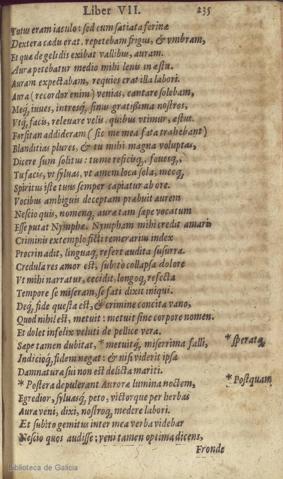 Liber VII. 235
Totus eram iaculo: sed cum satiata ferinæ
Dextera cædis erat, repetebam frigus, & vmbram,
Et quæ de gelidis exibat vallibus, auram.
Aura petebatur medio mihi lenis in æstu,
Auram expectabam, requies erat illa labori.
Aura (recordor enim) venias, cantare solebam,
Meq́, iuues, intresq́, sinus gratissima nostros,
Vtq́, facis, releuare velis, quibus vrimur, æstus.
Forsitan addideram (sic me mea fata trahebant)
Blanditias plures, & tu mihi magna voluptas,
Dicere sum solitus: tu me reficisq́, fouesq́,
Tu facis, vt syluas, vt amem loca sola, meoq́,
Spiritus iste tuus semper captatur ab ore.
Vocibus ambiguis deceptam præbuit aurem
Nescio quis, nomenq́, auræ tam sæpe vocatum
Esse putat Nymphæ. Nympham mihi credit amari.
Criminis extemplo ficti temerarius index
Procrin adit, linguaq́, refert audita susurra.
Credula res amor est, subito collapsa dolore
Vt mihi narratur, cecidit, longoq́, refecta
Tempore se miseram, se fati dixit iniqui.
Deq́, fide questa est, & crimine concita vano,
Quod nihil est, metuit: metuit sine corpore nomen.
Et dolet infelix veluti de pellice vera.
Sæpe tamen dubitat, * metuitq́, miserrima falli, * speratq́,
Indicioq́, fidem negat: & nisi viderit ipsa
Damnatura sui non est delicta mariti.
* Postera depulerant Auroræ lumina noctem, * Postquam
Egredior, syluasq́, peto, victorque per herbas
Aura veni, dixi, nostroq́, medere labori.
Et subito gemitus inter mea verba videbar
Nescio quos audisse: veni tamen optima dicens,
Fronde
Biblioteca de Galicia